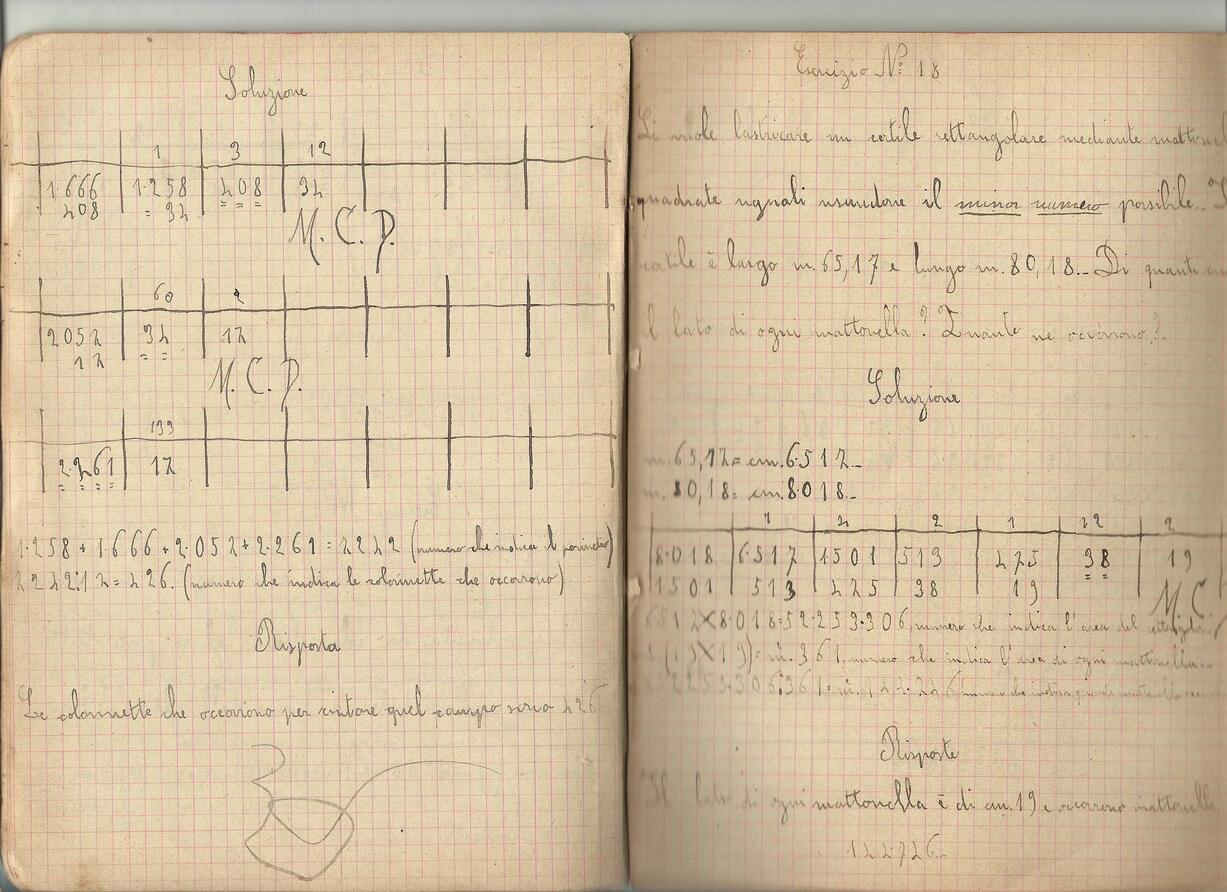 Soluzione
1 3 12
1.666 1.258 408 34
408 = 34
M. C. D.
60 2
2057 34 17
17
M. C. D.
133
2.261 17
1.258 + 1.666 + 2.057 + 2.261 = 7242 (numero che indica il perimetro)
7242:17 = 426. (numero che indica le colonnette che occorrono)
Risposta
Le colonnette che occorrono per cintare quel campo sono 426
Esercizio N° 18
Si vuole lastricare un cortile rettangolare mediante
quadrate uguali usandone il minor numero possibile.
cortile è largo m. 65,17 e lungo m. 80,18. Di quanti
il lato di ogni mattonella? Quante ne occorrono?
Soluzione
m. 65,17 = cm. 6517.
m. 80,18 = cm. 8.018.
1 4 2 1 12 2
8.018 6.517 1501 513 475 38 19
1.501 513 475 38 19
M. C.
6517 X 8.018 = 52.253.306, numero che indica l'area del rettangolo.
(19 X 19) = 361, numero che indica l'area di ogni mattonella.
52.253.306:361 = 144.746 (numero che indica quante mattonelle
Risposte
Il lato di ogni mattonella è di cm. 19 e occorrono mattonelle
144746.